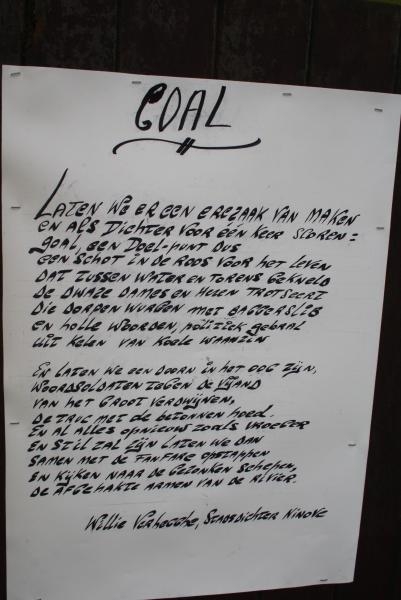 GOAL
LATEN WE ER EEN EREZAAK VAN MAKEN
EN ALS DICHTER VOOR ÉÉN KEER SCOREN =
goal, EEN DOEL-PUNT DUS
EEN SCHOT IN DE ROOS VOOR HET LEVEN
DAT TUSSEN WATER EN TORENS GEKNELD
DE DWAZE DAMES EN HEREN TROTSEERT
DIE DORPEN WURGEN MET BAGGERSLIB
EN HOLLE WOORDEN, POLITIEK GEBRAL
UIT KELEN VAN KOELE WAANZIN
EN LATEN WE EEN DOORN IN HET OOG ZIJN,
WOORDSOLDATEN TEGEN DE VIJAND
VAN HET GROOT VERDWIJNEN,
DE TRUC MET DE BETONNEN HOED.
EN AL ALLES OPNIEUW ZOALS VROEGER
EN STIL ZAL ZIJN LATEN WE DAN
SAMEN MET DE FANFARE OPSTAPPEN
EN KIJKEN NAAR DE GEZONKEN SCHEPEN,
DE AFGEHAKTE ARMEN VAN DE RIVIER.
Willie Verhegghe, STADSDICHTER NINOVE